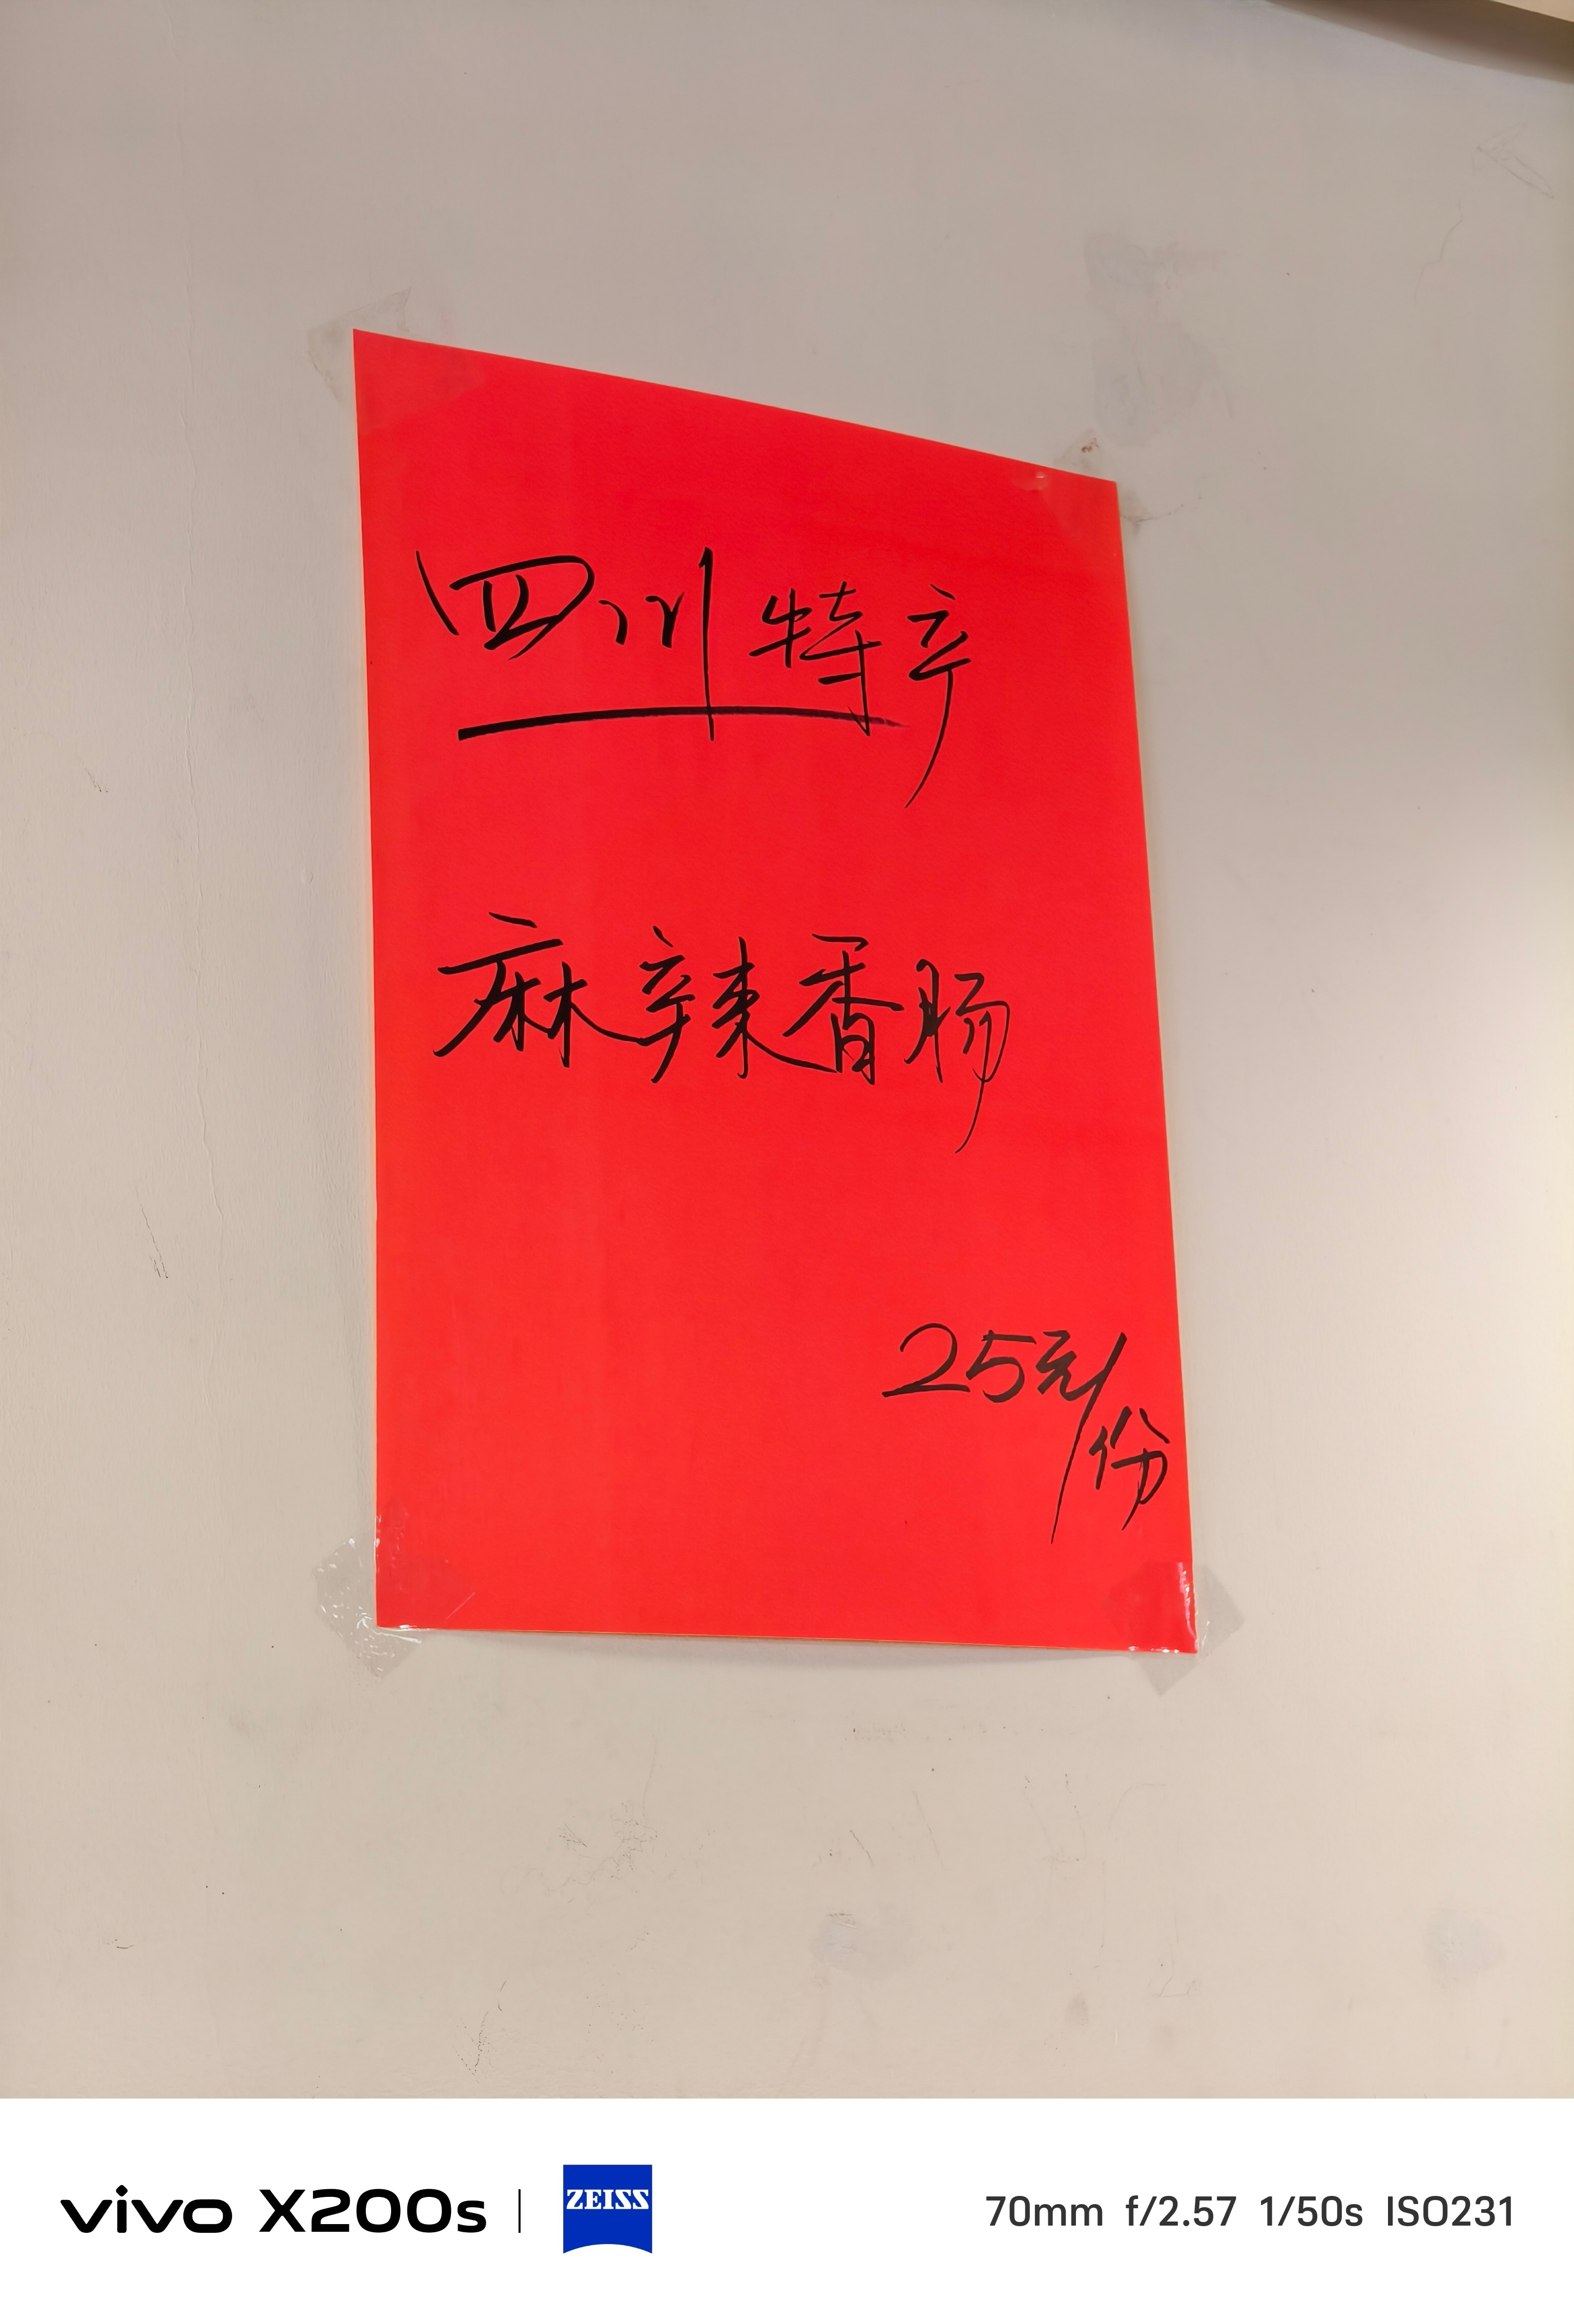 四川特产
麻辣香肠
25元/份
vivo X200s ZEISS 70mm f/2.57 1/50s ISO231